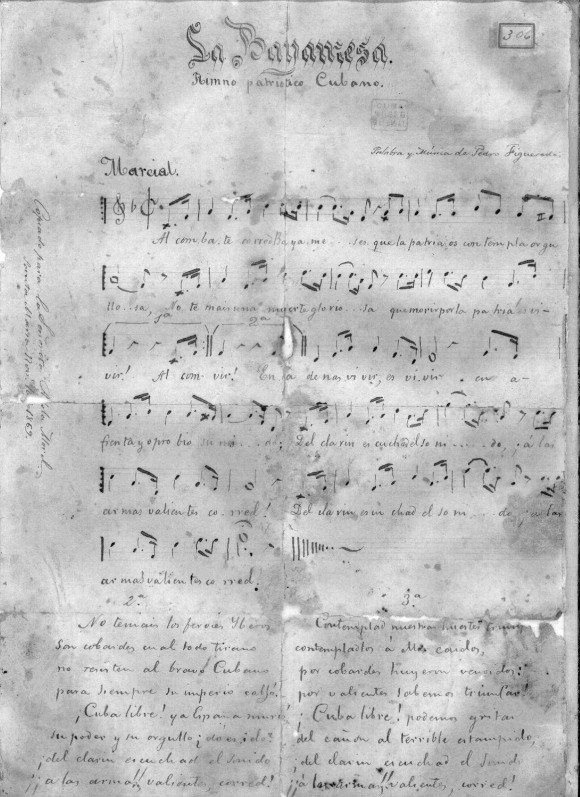 La Bayamesa.
306
Himno patriótico Cubano.
Palabra y Música de Pedro Figueredo.
Marcial.
Al com.ba.te corred Baya me...ses que la patria os contempla orgu
llo - sa, No te mais una muerte glorio...sa que morir por la patria es vi-
1ª 2ª
vir! Al com vir! En ca de nas vi vir, es vi vir . en a-
frenta y opro bio su mi..o; Del clarin es cuchad el so ni.....do, . a las
ar mas valientes co.. rred! Del clarin escu chad el so ni...do, . a las
armas valientes co rred.
2ª
No temais los feroces Yberos
Son cobardes cual todo tirano
no resisten al bravo Cubano
para siempre su imperio cayó!
¡Cuba libre! ya España murió
su poder y su orgullo ¿do es ido?
¡del clarin escuchad el sonido
¡¡a las armas!! valientes, corred!
3ª
Contemplad nuestras huestes triunf
contemplados a ellos caidos,
por cobardes huyeron vencidos:
por valientes sabemos triunfar!
¡Cuba libre! podemos gritar
del cañon al terrible estampido,
¡del clarin escuchad el sonido
¡¡a las armas!! valientes, corred!
Copiado para la Señorita
1869.